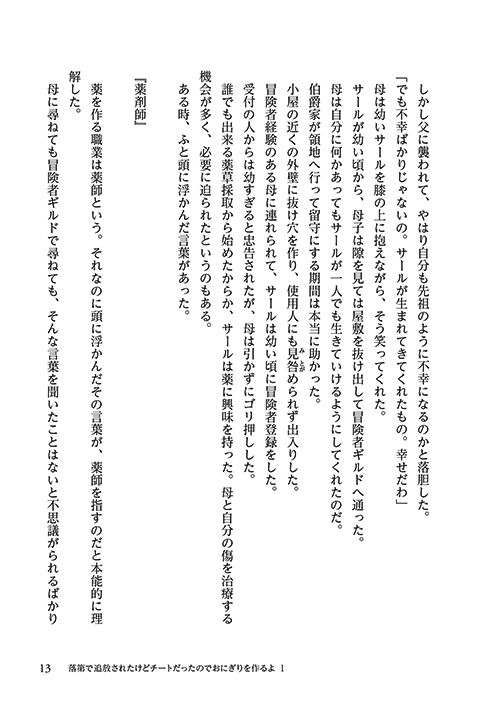 しかし父に襲われて、やはり自分も先祖のように不幸になるのかと落胆した。
「でも不幸ばかりじゃないの。サールが生まれてきてくれたもの。幸せだわ」
母は幼いサールを膝の上に抱えながら、そう笑ってくれた。
サールが幼い頃から、母子は隙を見ては屋敷を抜け出して冒険者ギルドへ通った。
母は自分に何かあってもサールが一人でも生きていけるようにしてくれたのだ。
伯爵家が領地へ行って留守にする期間は本当に助かった。
小屋の近くの外壁に抜け穴を作り、使用人にも見咎められず出入りした。
みとが
冒険者経験のある母に連れられて、サールは幼い頃に冒険者登録をした。
受付の人からは幼すぎると忠告されたが、母は引かずにゴリ押しした。
誰でも出来る薬草採取から始めたからか、サールは薬に興味を持った。母と自分の傷を治療する
機会が多く、必要に迫られたというのもある。
ある時、ふと頭に浮かんだ言葉があった。
『薬剤師』
薬を作る職業は薬師という。それなのに頭に浮かんだその言葉が、薬師を指すのだと本能的に理
解した。
母に尋ねても冒険者ギルドで尋ねても、そんな言葉を聞いたことはないと不思議がられるばかり
13 落第で追放されたけどチートだったのでおにぎりを作るよ 1